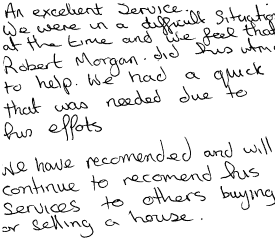 An excellent Service.
We were in a difficult Situation
at the time and we feel that
Robert Morgan. did his utmost
to help. We had a quick
that was needed due to
his effots
We have recomended and will
continue to recomend his
Services to others buying
or selling a house.